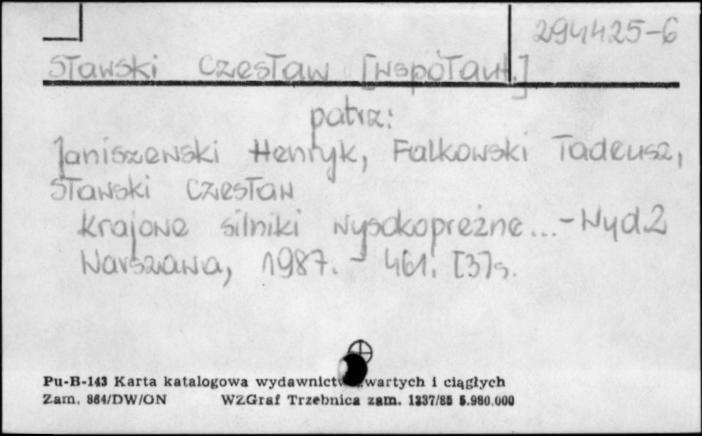 294425-6
Sławski Czesław [współaut.]
patrz:
Janiszewski Henryk, Falkowski Tadeusz,
Sławski Czesław
Krajowe silniki wysokoprężne...-Wyd.2
Warszawa, 1987. - 461. [3]s.
Pu-B-143 Karta katalogowa wydawnictw zwartych i ciągłych
Zam. 864/DW/ON WZGraf Trzebnica zam. 1337/85 5.980.000